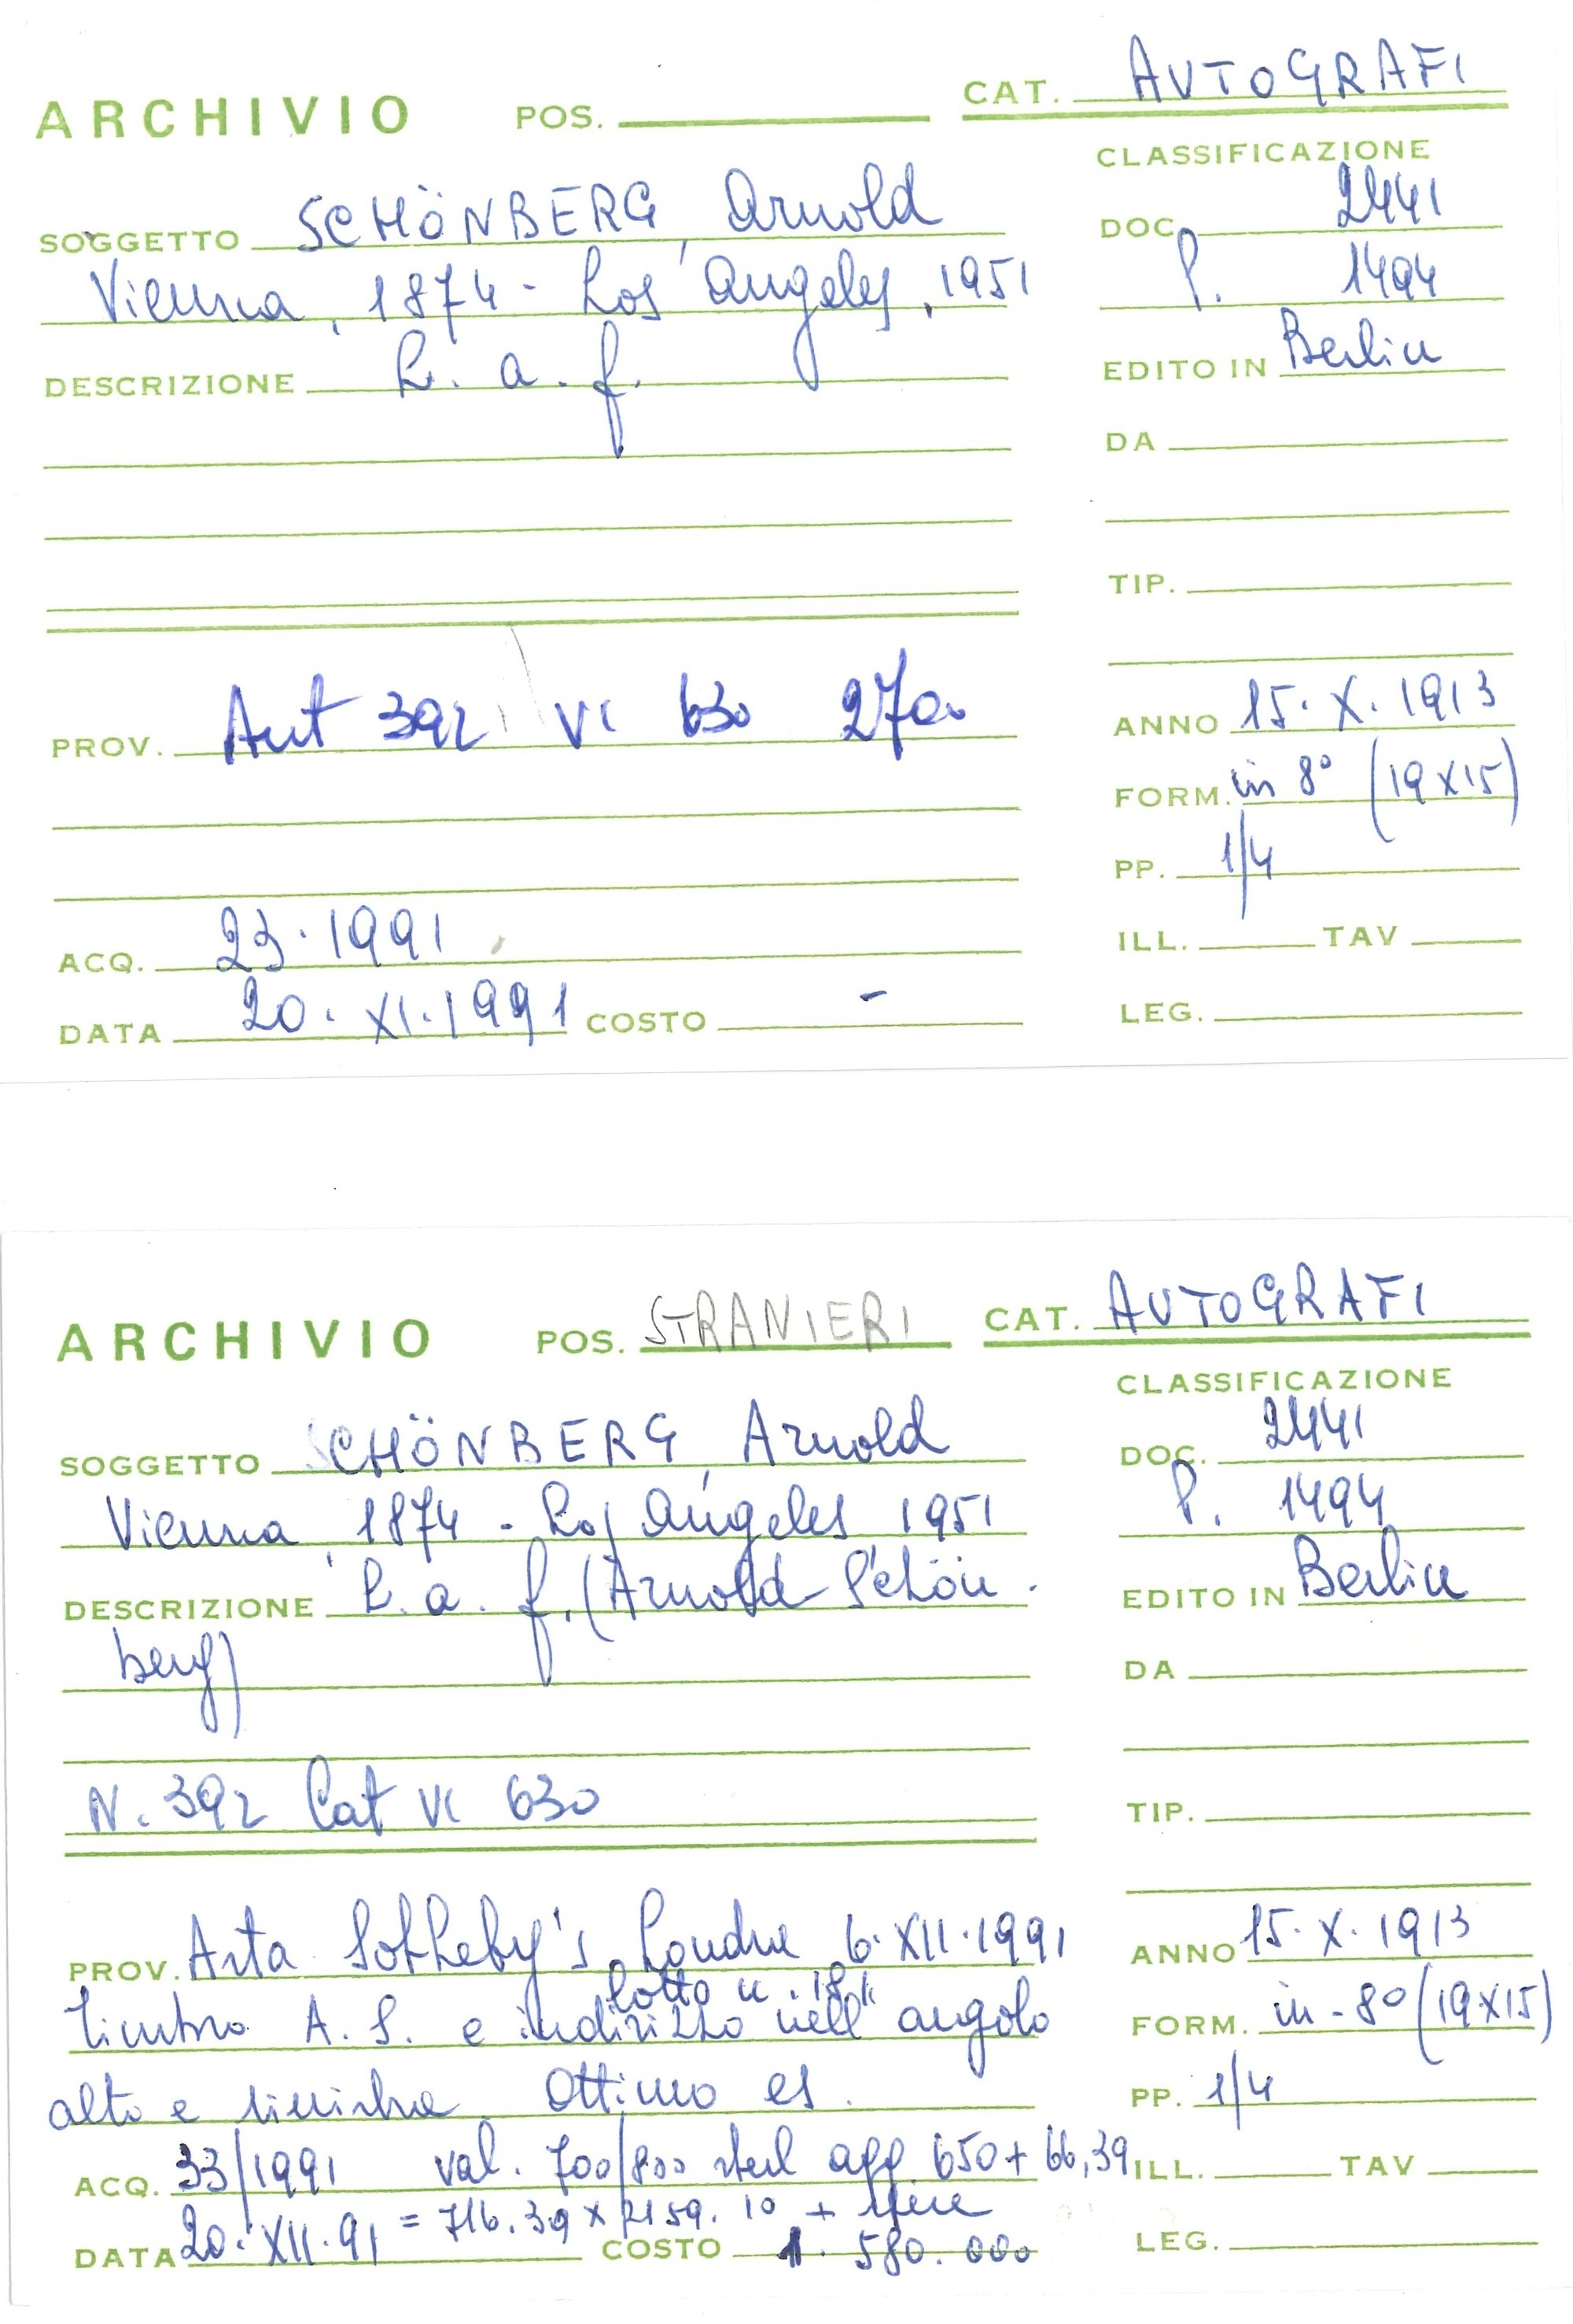 ARCHIVIO POS. CAT. AUTOGRAFI
CLASSIFICAZIONE
SOGGETTO SCHÖNBERG, Arnold DOC. 2441
Vienna, 1874 - Los Angeles, 1951 P. 1494
DESCRIZIONE L. a. f. EDITO IN Berlin
DA
TIP.
PROV. Aut 392 VI 630 270 ANNO 15. X. 1913
FORM. in 8° (19x15)
PP. 1/4
ACQ. 23.1991 ILL. TAV
DATA 20. XI. 1991 COSTO - LEG.
ARCHIVIO POS. STRANIERI CAT. AUTOGRAFI
CLASSIFICAZIONE
SOGGETTO SCHÖNBERG, Arnold DOC. 2441
Vienna, 1874 - Los Angeles 1951 P. 1494
DESCRIZIONE L. a. f. (Arnold Schön- EDITO IN Berlin
berg) DA
N. 392 Cat VI 630 TIP.
PROV. Asta Sotheby's Londra 6. XII. 1991 ANNO 15. X. 1913
lotto n. 181
timbro A. S. e indirizzo nell'angolo FORM. in-8° (19x15)
alto e sinistro. Ottimo es. PP. 1/4
ACQ. 33/1991 val. 700/800 sterl agg. 650 + 66,39 ILL. TAV
DATA 20. XII. 91 = 716.39 x 2159.10 + spese
COSTO 1.580.000 LEG.